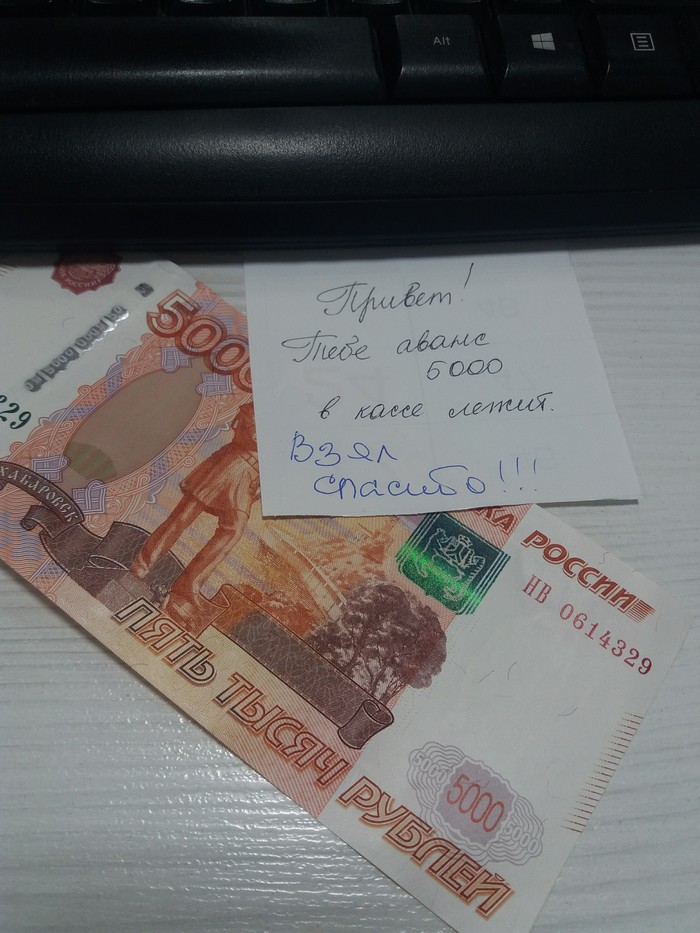 Alt
5000
Привет!
Тебе аванс
5000
в кассе лежит.
Взял
спасибо!!!
ХАБАРОВСК
РОССИИ
НВ 0614329
ПЯТЬ ТЫСЯЧ
РУБЛЕЙ
5000 5000 5000